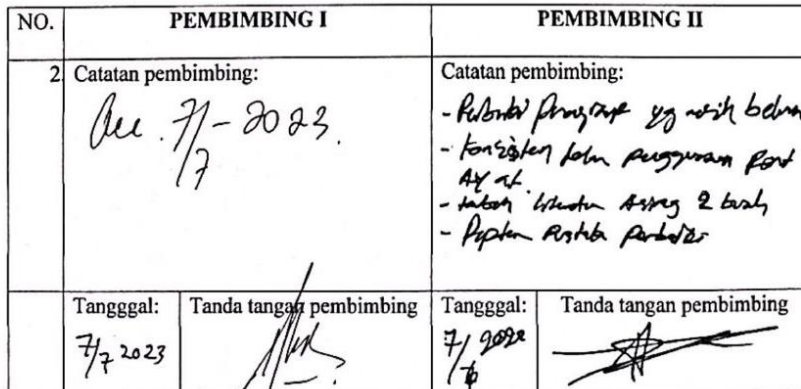 NO. PEMBIMBING I PEMBIMBING II
2. Catatan pembimbing:
Acc. 7/7 - 2023.
Catatan pembimbing:
- Perbaiki paragraf yg masih belum
- Konsisten penggunaan Font
Ayat.
- 2 buah
- Daftar Pustaka perbaiki
Tangggal: Tanda tangan pembimbing Tangggal: Tanda tangan pembimbing
7/7 2023